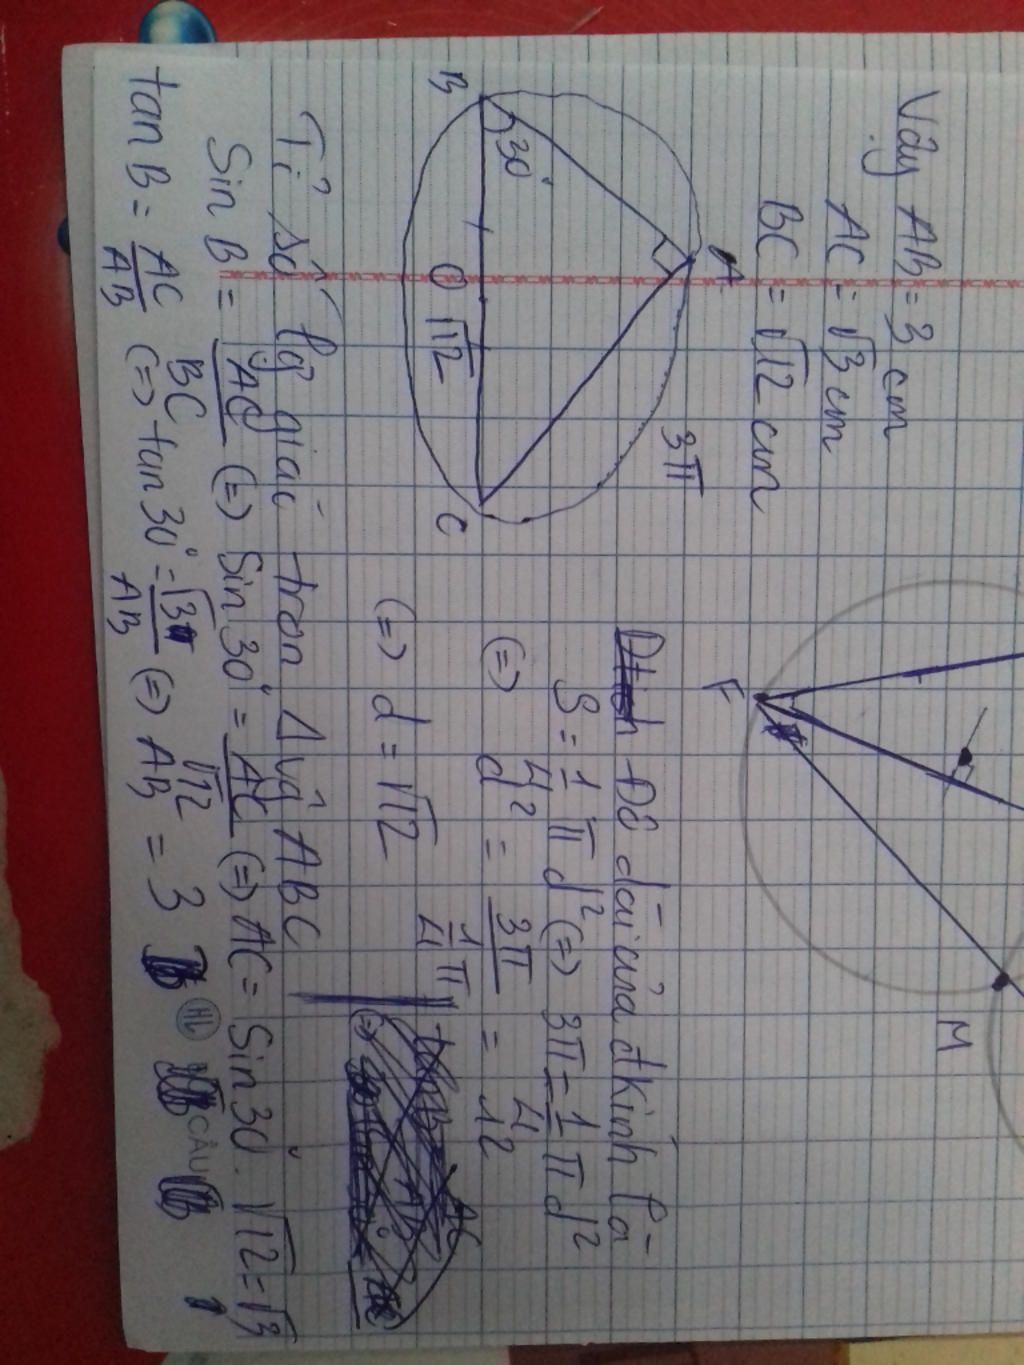 Vậy AB = 3 cm
AC = √3 cm
BC = √12 cm
A
3π
B
30°
O
√12
C
F
M
Độ dài của đkính là
S = 1/4 π d² (=) 3π = 1/4 π d²
(=) d² = 3π / 1/4 π = 12
(=) d = √12
Tỉ số lg giác tron Δ vg ABC
Sin B = AC/BC (=) Sin 30° = AC/√12 (=) AC = Sin 30°. √12 = √3
tan B = AC/AB (=) tan 30° = √3/AB (=) AB = 3
HL
CÂU